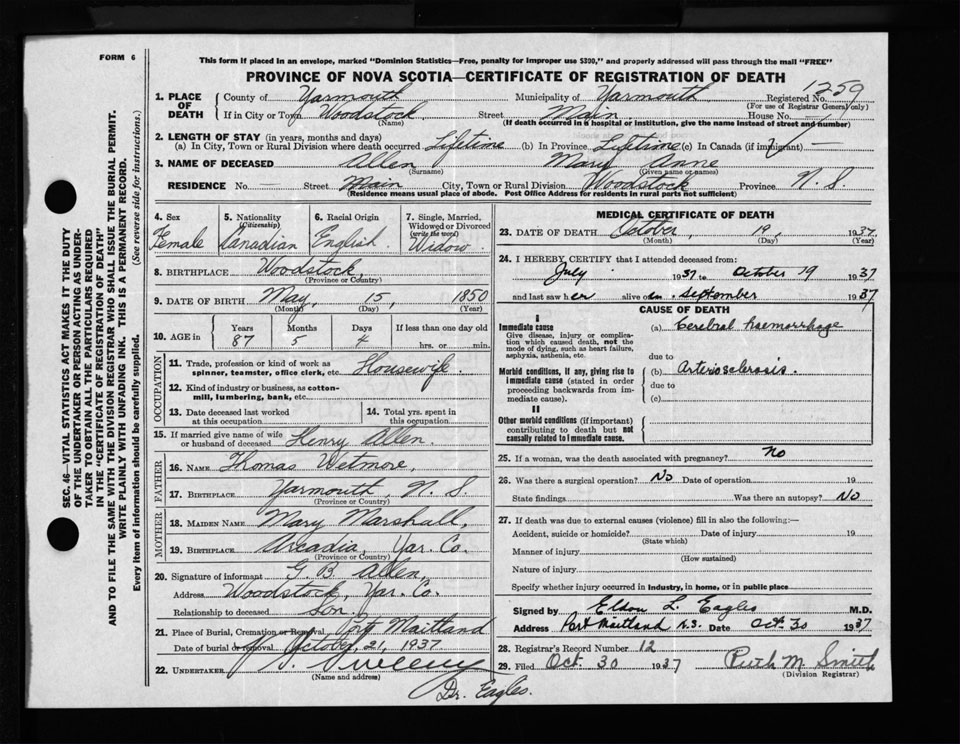 FORM 6
This form if placed in an envelope, marked "Dominion Statistics—Free, penalty for improper use $300," and properly addressed will pass through the mail "FREE"
PROVINCE OF NOVA SCOTIA—CERTIFICATE OF REGISTRATION OF DEATH
SEC. 46—VITAL STATISTICS ACT MAKES IT THE DUTY
OF THE UNDERTAKER OR PERSON ACTING AS UNDER-
TAKER TO OBTAIN ALL THE PARTICULARS REQUIRED
IN THE "CERTIFICATE OF REGISTRATION OF DEATH"
AND TO FILE THE SAME WITH THE DIVISION REGISTRAR WHO SHALL ISSUE THE BURIAL PERMIT.
WRITE PLAINLY WITH UNFADING INK. THIS IS A PERMANENT RECORD.
Every item of information should be carefully supplied. (See reverse side for instructions.)
1. PLACE OF DEATH County of Yarmouth Municipality of Yarmouth Registered No. 1259
(For use of Registrar General only)
If in City or Town Woodstock Street Main House No. —
(Name) (If death occurred in a hospital or institution, give the name instead of street and number)
2. LENGTH OF STAY (in years, months and days)
(a) In City, Town or Rural Division where death occurred Lifetime (b) In Province Lifetime (c) In Canada (if immigrant) —
3. NAME OF DECEASED Allen Mary Anne
(Surname) (Given name or names)
RESIDENCE No. — Street Main City, Town or Rural Division Woodstock Province N. S.
(Residence means usual place of abode. Post Office Address for residents in rural parts not sufficient)
4. Sex Female
5. Nationality (Citizenship) Canadian
6. Racial Origin English
7. Single, Married, Widowed or Divorced (write the word) Widow
8. BIRTHPLACE Woodstock,
(Province or Country)
9. DATE OF BIRTH May, 15, 1850
(Month) (Day) (Year)
10. AGE in Years 87 Months 5 Days 4 If less than one day old hrs. or min.
OCCUPATION
11. Trade, profession or kind of work as spinner, teamster, office clerk, etc. Housewife.
12. Kind of industry or business, as cotton-mill, lumbering, bank, etc.
13. Date deceased last worked at this occupation
14. Total yrs. spent in this occupation
15. If married give name of wife or husband of deceased Henry Allen.
FATHER
16. NAME Thomas Wetmore,
17. BIRTHPLACE Yarmouth, N. S.
(Province or Country)
MOTHER
18. MAIDEN NAME Mary Marshall,
19. BIRTHPLACE Arcadia, Yar. Co.
(Province or Country)
20. Signature of informant G. B Allen,
Address Woodstock, Yar. Co.
Relationship to deceased Son.
21. Place of Burial, Cremation or Removal Port Maitland
Date of burial or removal October, 21, 1937.
22. UNDERTAKER Sweeny
(Name and address)
Dr. Eagles.
MEDICAL CERTIFICATE OF DEATH
23. DATE OF DEATH October, 19, 1937.
(Month) (Day) (Year)
24. I HEREBY CERTIFY that I attended deceased from:
July 1937 to October 19 1937
and last saw h er alive in September 1937
CAUSE OF DEATH
I
Immediate cause
Give disease, injury or complication which caused death, not the mode of dying, such as heart failure, asphyxia, asthenia, etc.
(a) Cerebral haemorrhage
due to
Morbid conditions, if any, giving rise to immediate cause (stated in order proceeding backwards from immediate cause).
(b) Arteriosclerosis.
due to
(c)
II
Other morbid conditions (if important) contributing to death but not causally related to immediate cause.
25. If a woman, was the death associated with pregnancy? No
26. Was there a surgical operation? No Date of operation 19
State findings Was there an autopsy? No
27. If death was due to external causes (violence) fill in also the following:—
Accident, suicide or homicide? Date of injury 19
(State which)
Manner of injury
(How sustained)
Nature of injury
Specify whether injury occurred in industry, in home, or in public place
Signed by Eldon L. Eagles M.D.
Address Port Maitland N.S. Date Oct. 30 1937
28. Registrar's Record Number 12
29. Filed Oct. 30 1937 Ruth M. Smith
(Division Registrar)